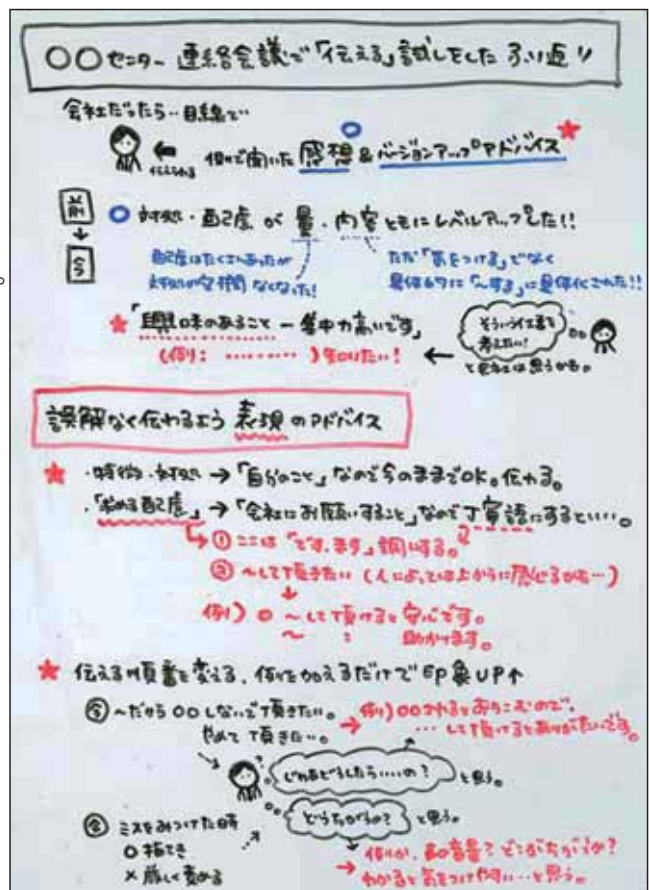 〇〇センター 連絡会議で「伝える」試しをした ふり返り
会社だったら‥目線で
伝えられる
側で聞いた 感想 & バージョンアップアドバイス
前
今
対処・配慮 が 量・内容 ともにレベルアップした!!
配慮はたくさんあったが
対処が空欄 なくなった!
ただ「気をつける」でなく
具体的に「〜する」に具体化された!!
★「興味のあること − 集中力高いです」
(例: ‥‥‥‥‥ )を知りたい!
そういう仕事を
考えたい!
と会社は思うかも。
誤解なく伝わるよう 表現 のアドバイス
★ ・特徴・対処 → 「自分のこと」なので今のままでOK。伝わる。
・「求める配慮」→「会社にお願いすること」なので丁寧語にするといい。
① ここは「です、ます」調にする。
② 〜して頂きたい (人によっては上からに感じるかも…)
例) 〇 〜して頂けると 安心です。
〜 : 助かります。
★ 伝える順番を変える、例を加えるだけで 印象UP↑
㋿ 〜だから 〇〇しないで頂きたい。
やめて 頂きたい。
→ 例) 〇〇されるとおちこむので、
… して頂けるとありがたいです。
じゃあどうしたら…いいの?
と思う。
ミスをみつけた時
〇 指てき
× 厳しく責める
どうちがうの?
と思う。
例)か、声の音量? どこがちがうか?
→ わかると気をつけやすい…と思う。